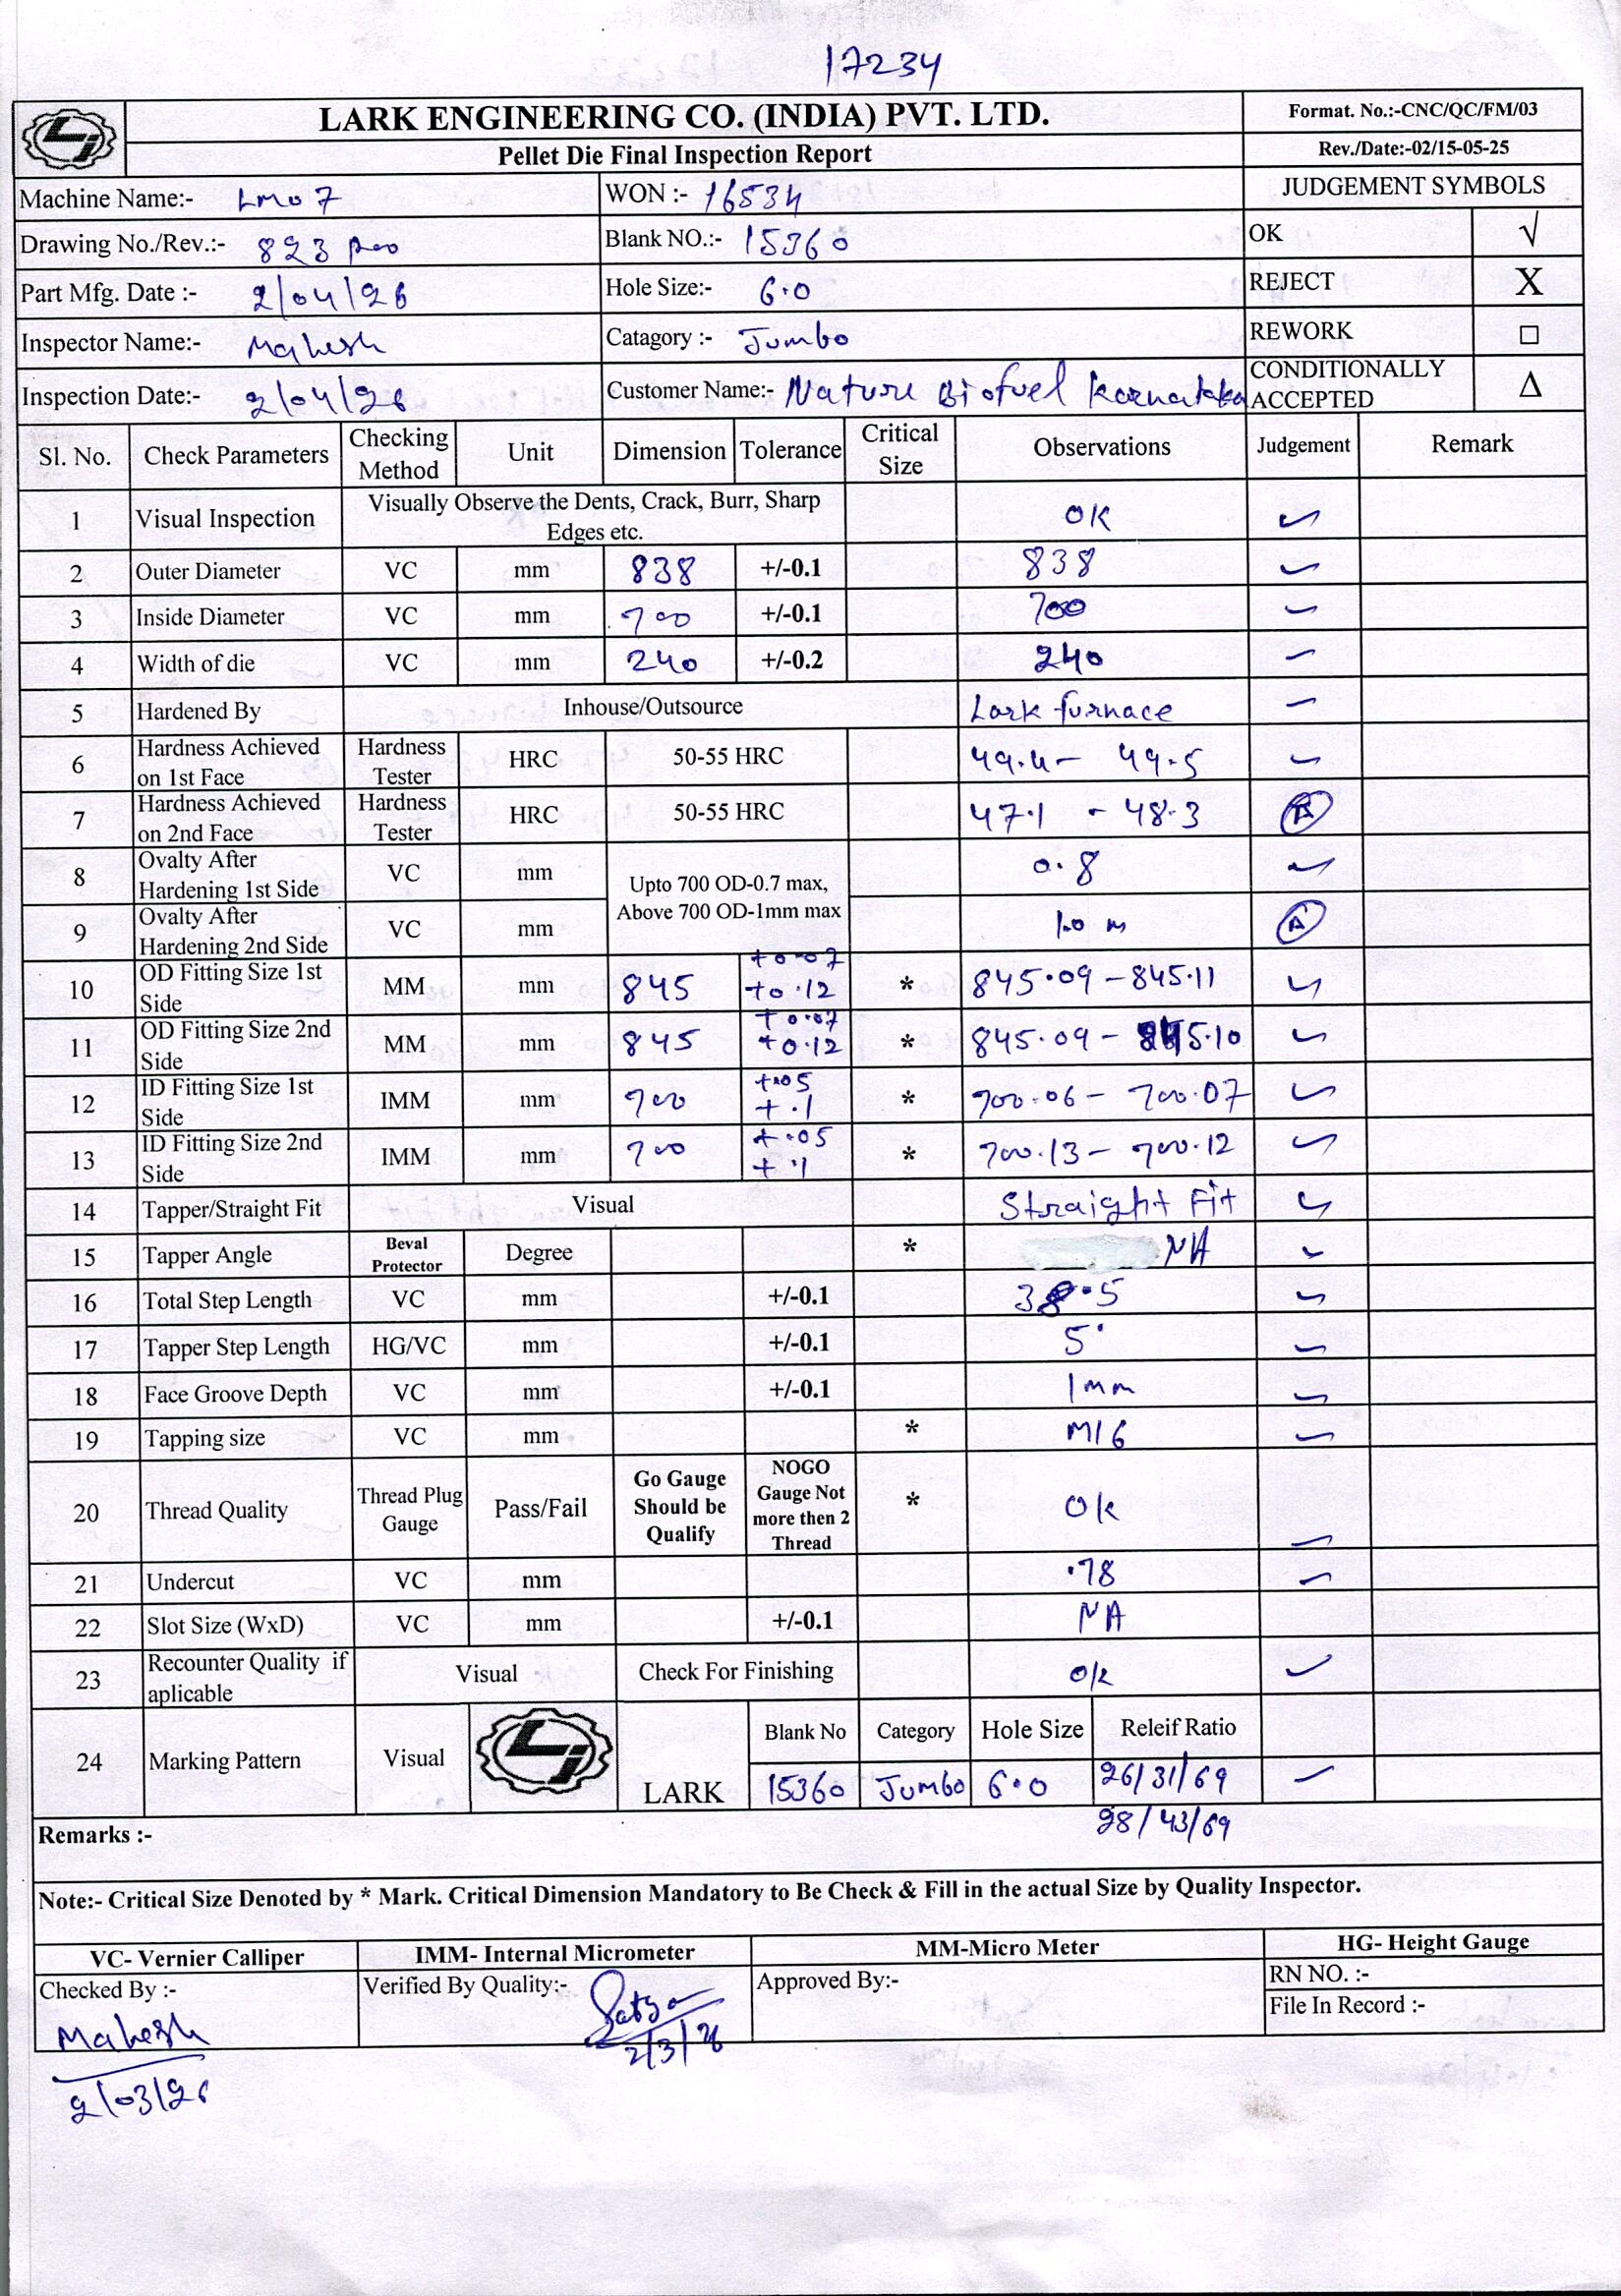 17234
LARK ENGINEERING CO. (INDIA) PVT. LTD.
Format. No.:-CNC/QC/FM/03
Pellet Die Final Inspection Report
Rev./Date:-02/15-05-25
Machine Name:- LM07 WON :- 16534 JUDGEMENT SYMBOLS
Drawing No./Rev.:- 823 Blank NO.:- 15360 OK √
Part Mfg. Date :- 2/04/26 Hole Size:- 6.0 REJECT X
Inspector Name:- Mahesh Catagory :- Jumbo REWORK □
Inspection Date:- 2/04/26 Customer Name:- Nature Biofuel Karnataka CONDITIONALLY ACCEPTED Δ
Sl. No. Check Parameters Checking Method Unit Dimension Tolerance Critical Size Observations Judgement Remark
1 Visual Inspection Visually Observe the Dents, Crack, Burr, Sharp Edges etc. OK ✓
2 Outer Diameter VC mm 838 +/-0.1 838 ✓
3 Inside Diameter VC mm 700 +/-0.1 700 ✓
4 Width of die VC mm 240 +/-0.2 240 ✓
5 Hardened By Inhouse/Outsource Lark furnace ✓
6 Hardness Achieved on 1st Face Hardness Tester HRC 50-55 HRC 49.4 - 49.5 ✓
7 Hardness Achieved on 2nd Face Hardness Tester HRC 50-55 HRC 47.1 - 48.3
8 Ovalty After Hardening 1st Side VC mm Upto 700 OD-0.7 max, Above 700 OD-1mm max 0.8 ✓
9 Ovalty After Hardening 2nd Side VC mm 1.0 m
10 OD Fitting Size 1st Side MM mm 845 +0.07 +0.12 * 845.09 - 845.11 ✓
11 OD Fitting Size 2nd Side MM mm 845 +0.07 +0.12 * 845.09 - 845.10 ✓
12 ID Fitting Size 1st Side IMM mm 700 +.05 +.1 * 700.06 - 700.07 ✓
13 ID Fitting Size 2nd Side IMM mm 700 +.05 +.1 * 700.13 - 700.12 ✓
14 Tapper/Straight Fit Visual Straight Fit ✓
15 Tapper Angle Beval Protector Degree * NA ✓
16 Total Step Length VC mm +/-0.1 38.5 ✓
17 Tapper Step Length HG/VC mm +/-0.1 5° ✓
18 Face Groove Depth VC mm +/-0.1 1mm ✓
19 Tapping size VC mm * M16 ✓
20 Thread Quality Thread Plug Gauge Pass/Fail Go Gauge Should be Qualify NOGO Gauge Not more then 2 Thread * Ok ✓
21 Undercut VC mm .78 ✓
22 Slot Size (WxD) VC mm +/-0.1 NA
23 Recounter Quality if aplicable Visual Check For Finishing ok ✓
24 Marking Pattern Visual LARK Blank No Category Hole Size Releif Ratio
15360 Jumbo 6.0 26/31/69 ✓
28/43/69
Remarks :-
Note:- Critical Size Denoted by * Mark. Critical Dimension Mandatory to Be Check & Fill in the actual Size by Quality Inspector.
VC- Vernier Calliper IMM- Internal Micrometer MM-Micro Meter HG- Height Gauge
Checked By :- Verified By Quality:- Approved By:- RN NO. :-
File In Record :-
Mahesh
2/3/26
2/03/26